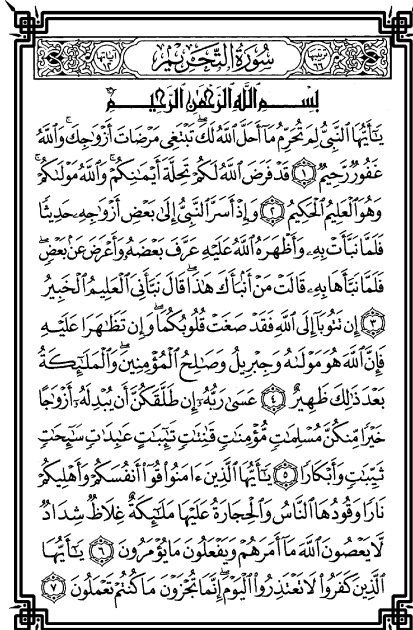 ترتيبها ٦٦ سورة التحريم آياتها ١٢
بِسْمِ اللَّهِ الرَّحْمَٰنِ الرَّحِيمِ
يَٰٓأَيُّهَا ٱلنَّبِىُّ لِمَ تُحَرِّمُ مَآ أَحَلَّ ٱللَّهُ لَكَ ۖ تَبْتَغِى مَرْضَاتَ أَزْوَٰجِكَ ۚ وَٱللَّهُ
غَفُورٌ رَّحِيمٌ ١ قَدْ فَرَضَ ٱللَّهُ لَكُمْ تَحِلَّةَ أَيْمَٰنِكُمْ ۚ وَٱللَّهُ مَوْلَىٰكُمْ ۖ
وَهُوَ ٱلْعَلِيمُ ٱلْحَكِيمُ ٢ وَإِذْ أَسَرَّ ٱلنَّبِىُّ إِلَىٰ بَعْضِ أَزْوَٰجِهِۦ حَدِيثًا
فَلَمَّا نَبَّأَتْ بِهِۦ وَأَظْهَرَهُ ٱللَّهُ عَلَيْهِ عَرَّفَ بَعْضَهُۥ وَأَعْرَضَ عَنۢ بَعْضٍ ۖ
فَلَمَّا نَبَّأَهَا بِهِۦ قَالَتْ مَنْ أَنۢبَأَكَ هَٰذَا ۖ قَالَ نَبَّأَنِىَ ٱلْعَلِيمُ ٱلْخَبِيرُ
٣ إِن تَتُوبَآ إِلَى ٱللَّهِ فَقَدْ صَغَتْ قُلُوبُكُمَا ۖ وَإِن تَظَٰهَرَا عَلَيْهِ
فَإِنَّ ٱللَّهَ هُوَ مَوْلَىٰهُ وَجِبْرِيلُ وَصَٰلِحُ ٱلْمُؤْمِنِينَ ۖ وَٱلْمَلَٰٓئِكَةُ
بَعْدَ ذَٰلِكَ ظَهِيرٌ ٤ عَسَىٰ رَبُّهُۥٓ إِن طَلَّقَكُنَّ أَن يُبْدِلَهُۥٓ أَزْوَٰجًا
خَيْرًا مِّنكُنَّ مُسْلِمَٰتٍ مُّؤْمِنَٰتٍ قَٰنِتَٰتٍ تَٰٓئِبَٰتٍ عَٰبِدَٰتٍ سَٰٓئِحَٰتٍ
ثَيِّبَٰتٍ وَأَبْكَارًا ٥ يَٰٓأَيُّهَا ٱلَّذِينَ ءَامَنُوا۟ قُوٓا۟ أَنفُسَكُمْ وَأَهْلِيكُمْ
نَارًا وَقُودُهَا ٱلنَّاسُ وَٱلْحِجَارَةُ عَلَيْهَا مَلَٰٓئِكَةٌ غِلَاظٌ شِدَادٌ
لَّا يَعْصُونَ ٱللَّهَ مَآ أَمَرَهُمْ وَيَفْعَلُونَ مَا يُؤْمَرُونَ ٦ يَٰٓأَيُّهَا
ٱلَّذِينَ كَفَرُوا۟ لَا تَعْتَذِرُوا۟ ٱلْيَوْمَ ۖ إِنَّمَا تُجْزَوْنَ مَا كُنتُمْ تَعْمَلُونَ ٧